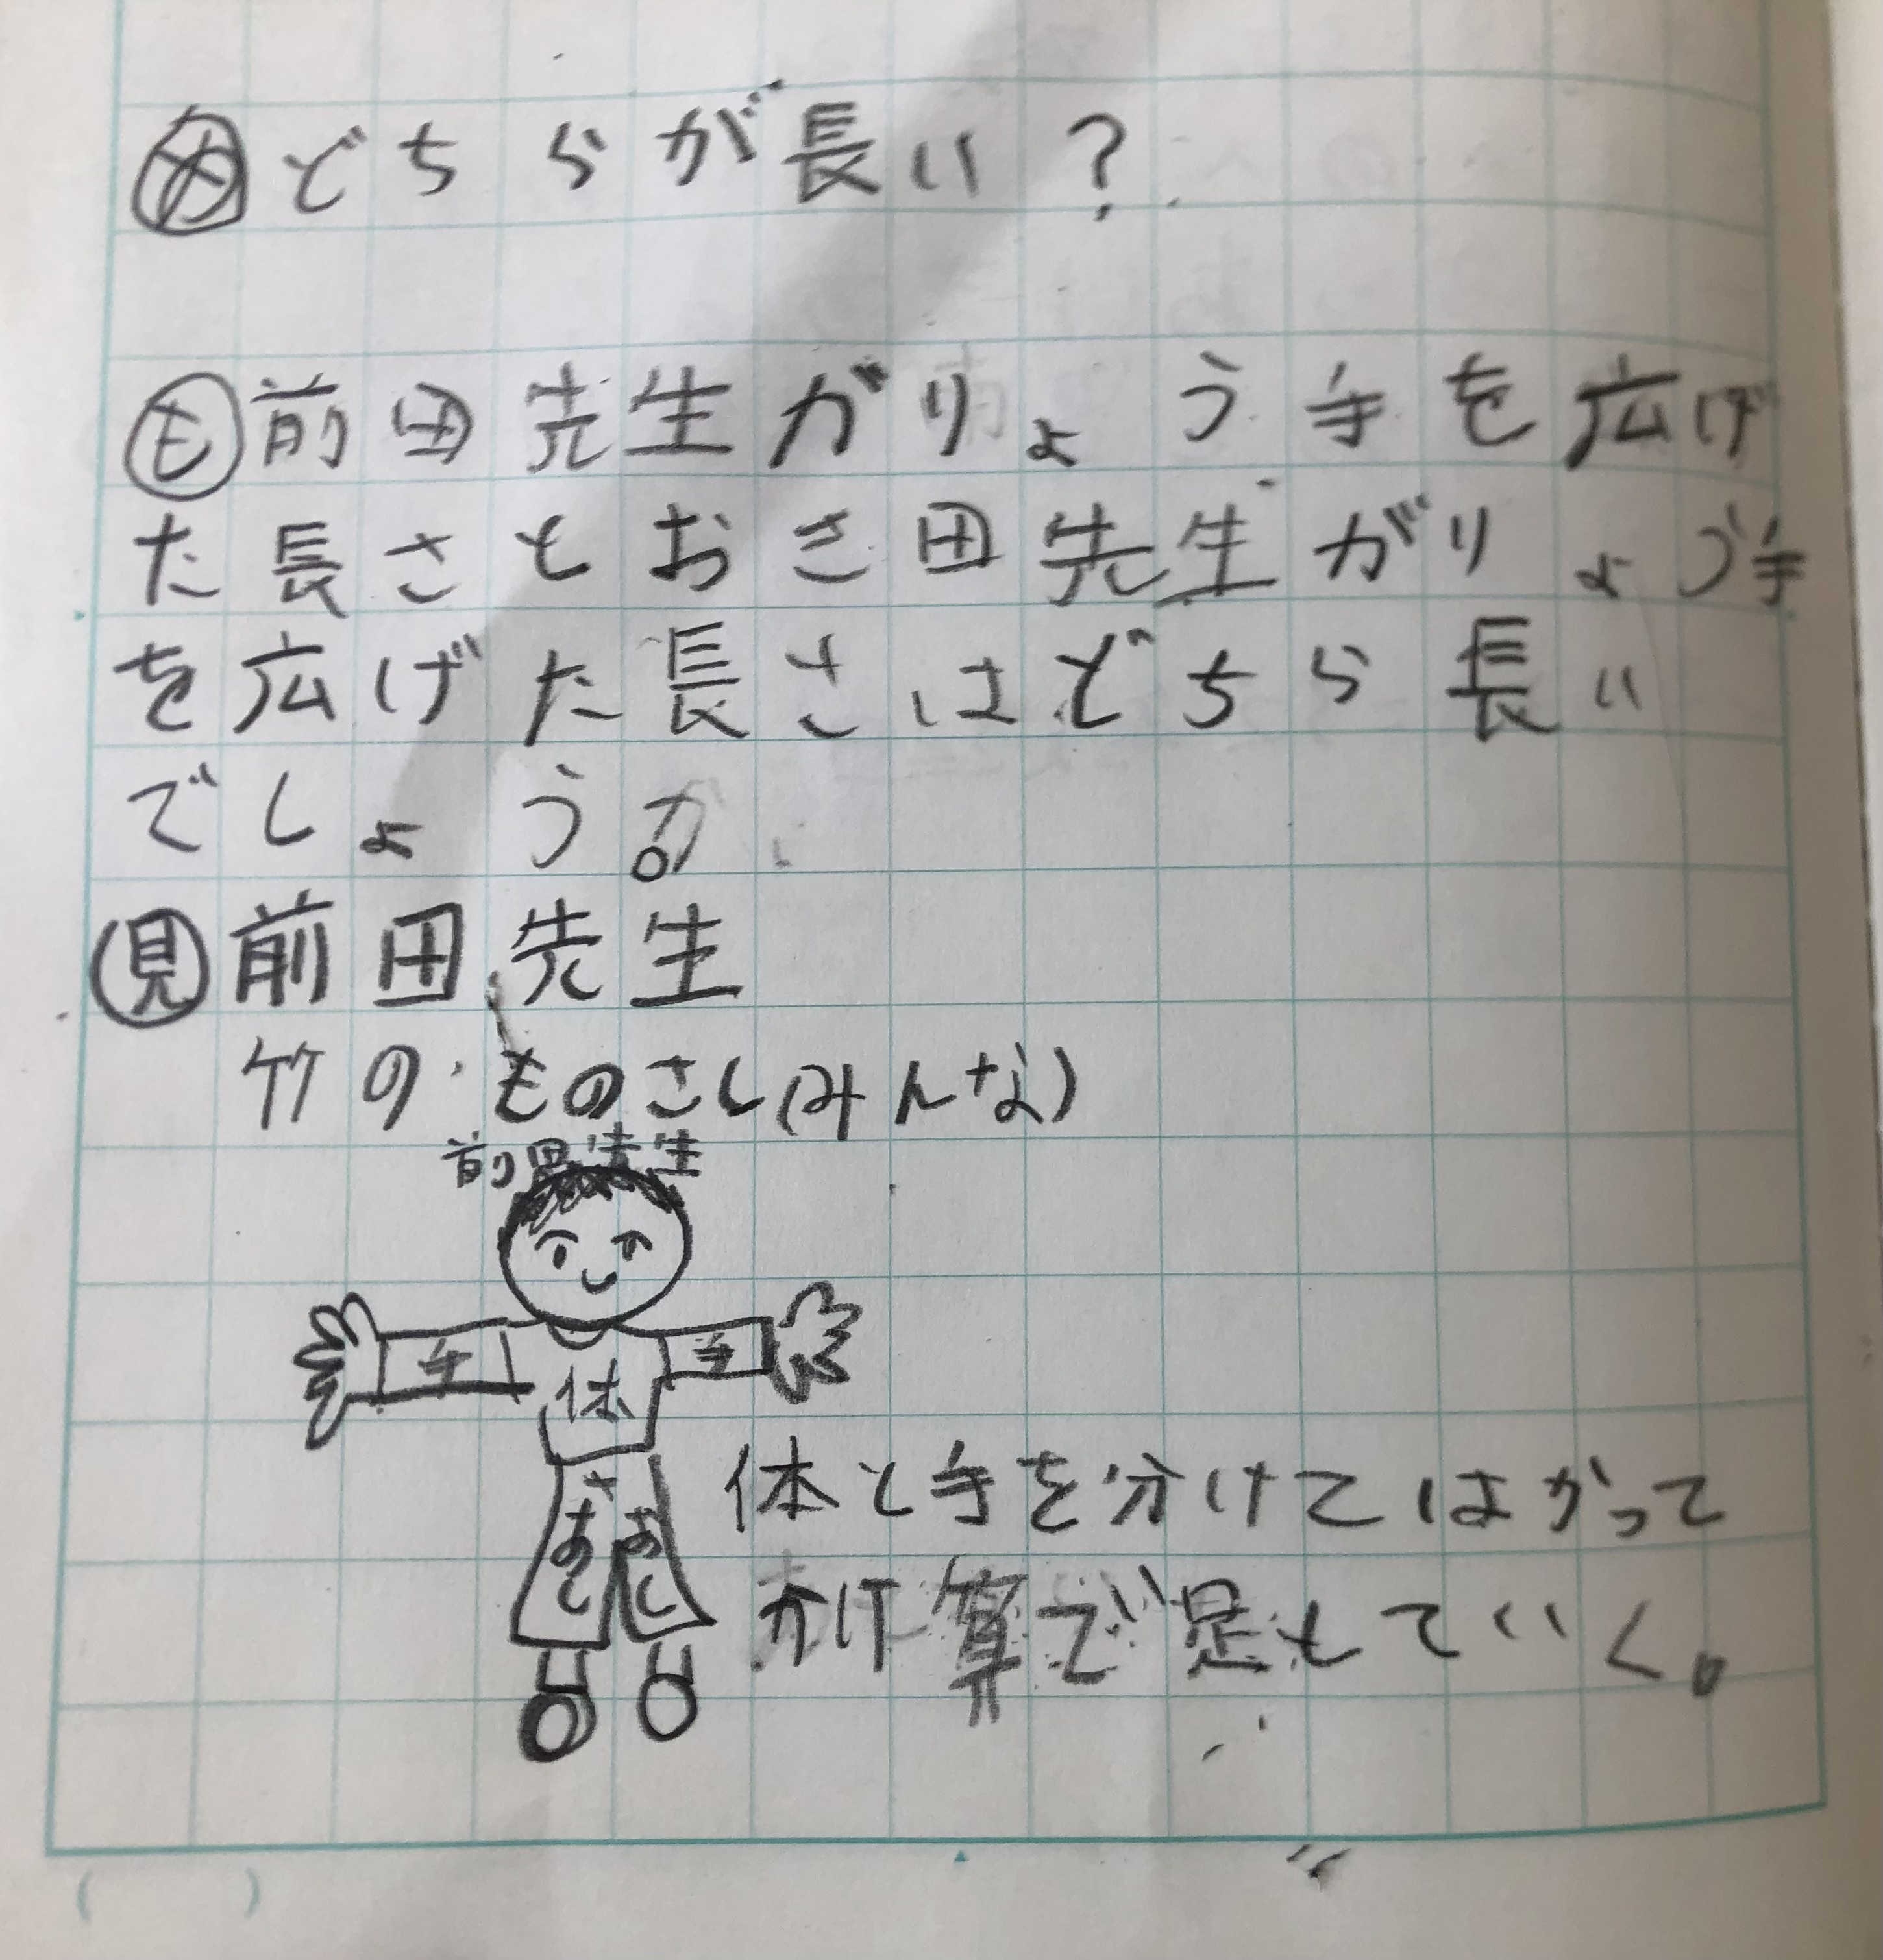 めどちらが長い?
も前田先生がりょう手を広げ
た長さとおさ田先生がりょう手
を広げた長さはどちら長い
でしょうか。
見前田先生
竹のものさし(みんな)
前田先生
手 体 手
あし あし
体と手を分けてはかって
かけ算で足していく。